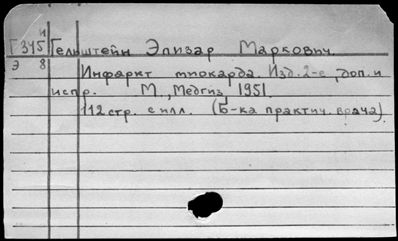 и
Г 345 Гельштейн Элизар Маркович.
Э 8
Инфаркт миокарда. Изд. 2-е, доп. и
испр. М., Медгиз, 1951.
112 стр. с илл. (Б-ка практич. врача)